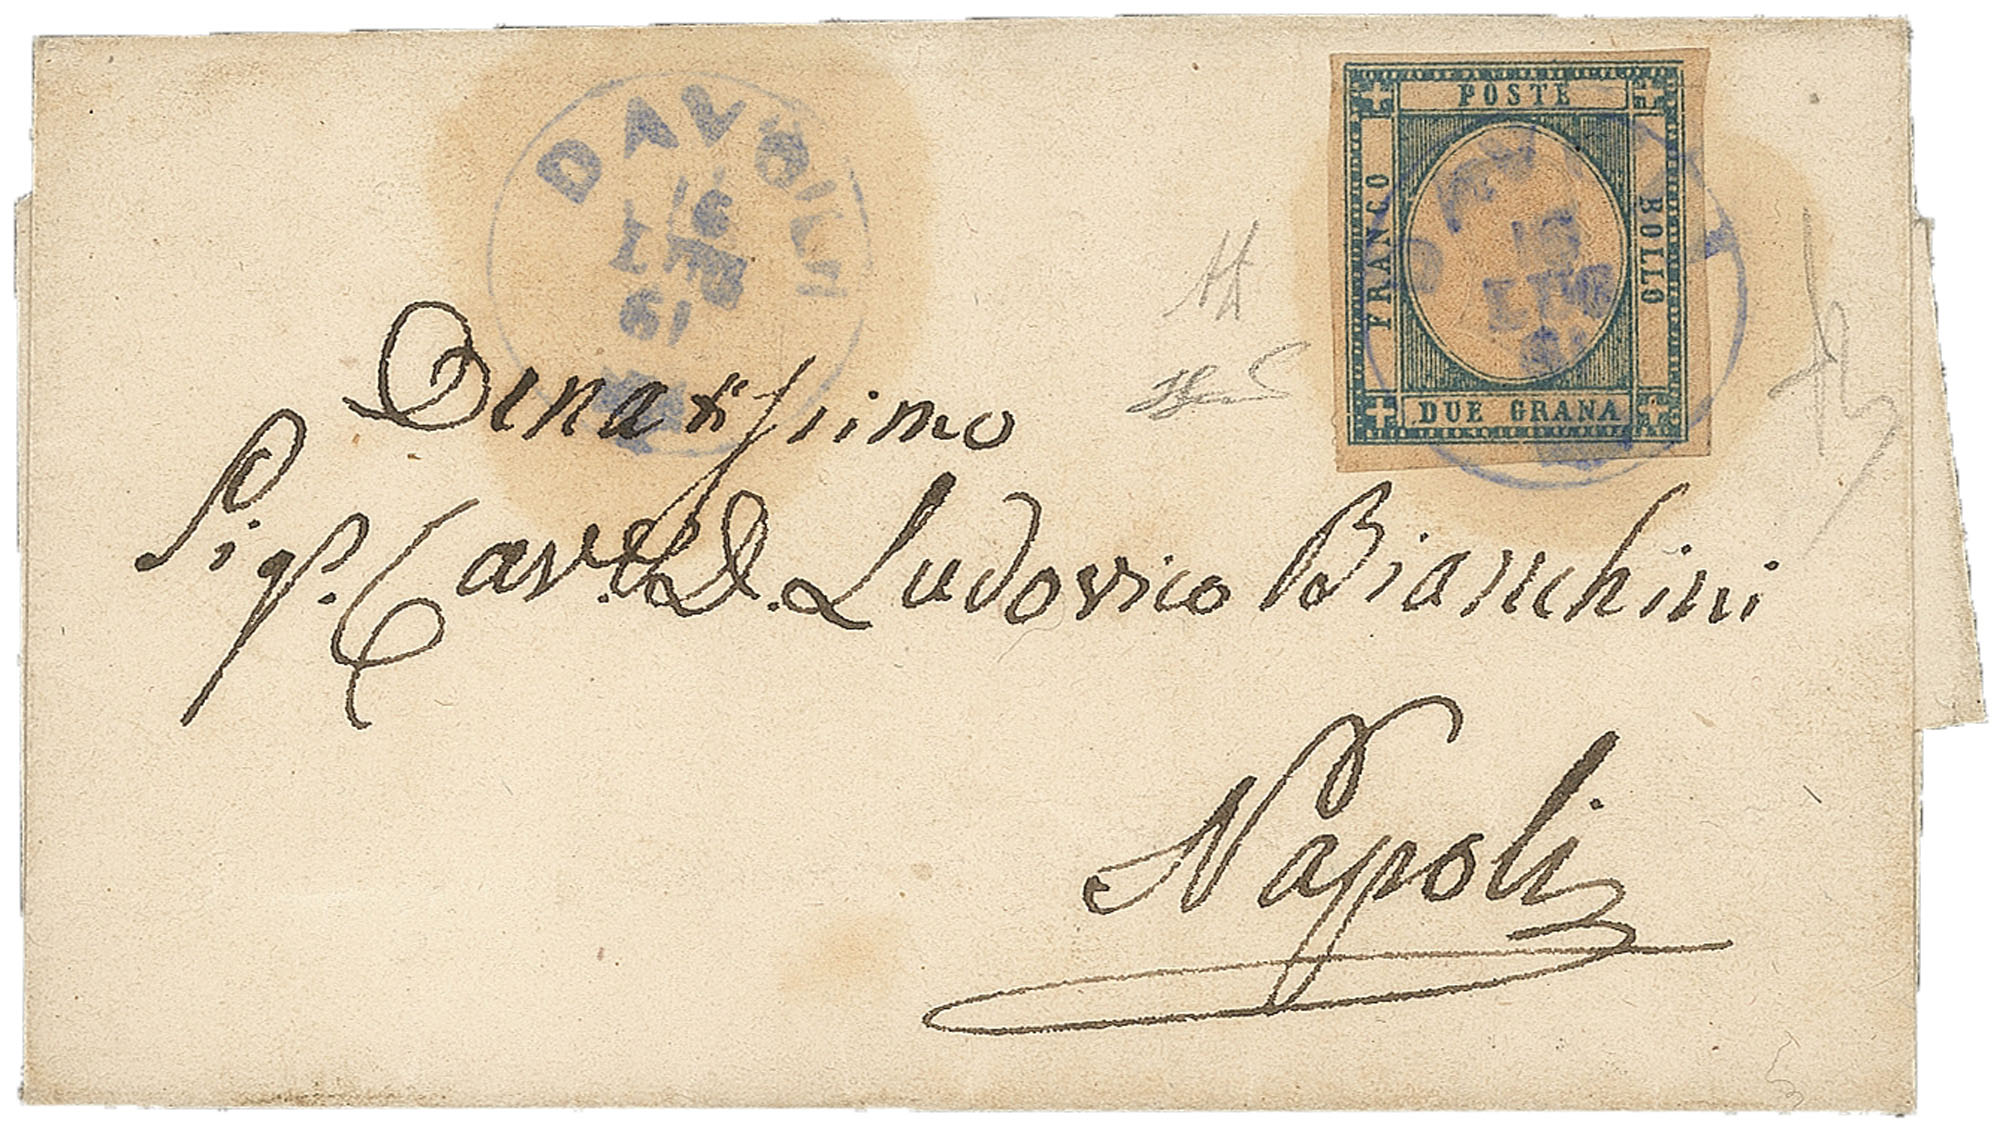 DAVOLI
16
LUG
61
POSTE
FRANCO
BOLLO
DUE GRANA
16
LUG
Ornatissimo
Sigr. Cave. D. Ludovico Bianchini
Napoli